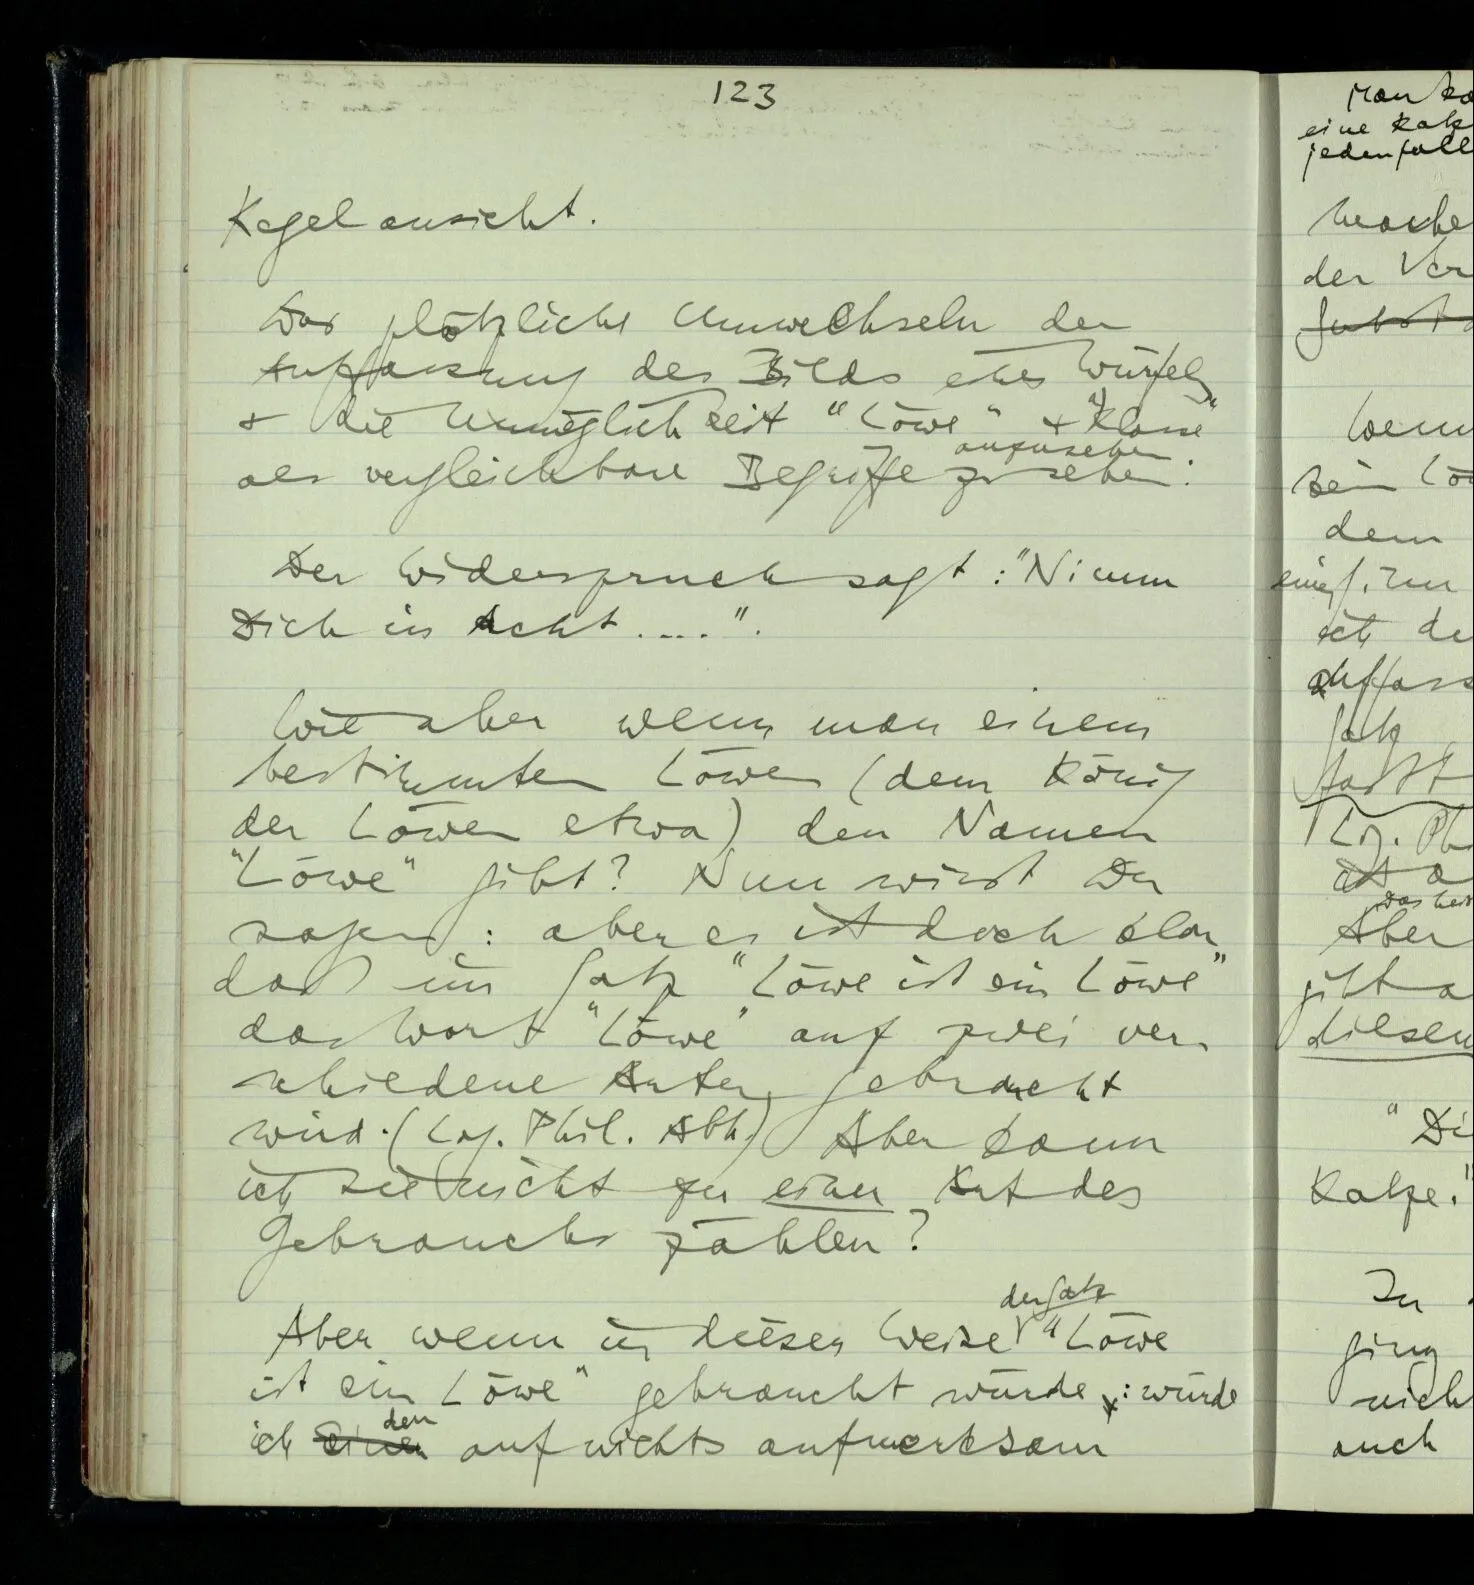 123
Kegelansicht.
Das plötzliche Umwechseln der
Auffassung des Bilds eines Würfels
& die Unmöglichkeit "Löwe" & "Klasse"
anzusehen.
als vergleichbare Begriffe zu sehen.
Der Widerspruch sagt: "Nimm
Dich in Acht....".
Wie aber wenn man einem
bestimmten Löwen (dem König
der Löwen etwa) den Namen
"Löwe" gibt? Nun wirst Du
sagen: aber es ist doch klar
daß im Satz "Löwe ist ein Löwe"
das Wort "Löwe" auf zwei ver-
schiedene Arten gebraucht
wird. (Log. Phil. Abh.) Aber kann
ich sie nicht zu einer Art des
Gebrauchs zählen?
der Satz
Aber wenn in dieser Weise "Löwe
ist ein Löwe" gebraucht würde: würde
den
ich einen auf nichts aufmerksam
Man
eine
der
dem
ich
Satz
Log.
Aber
gibt
diesen
"
Katze."
In
ging
auch